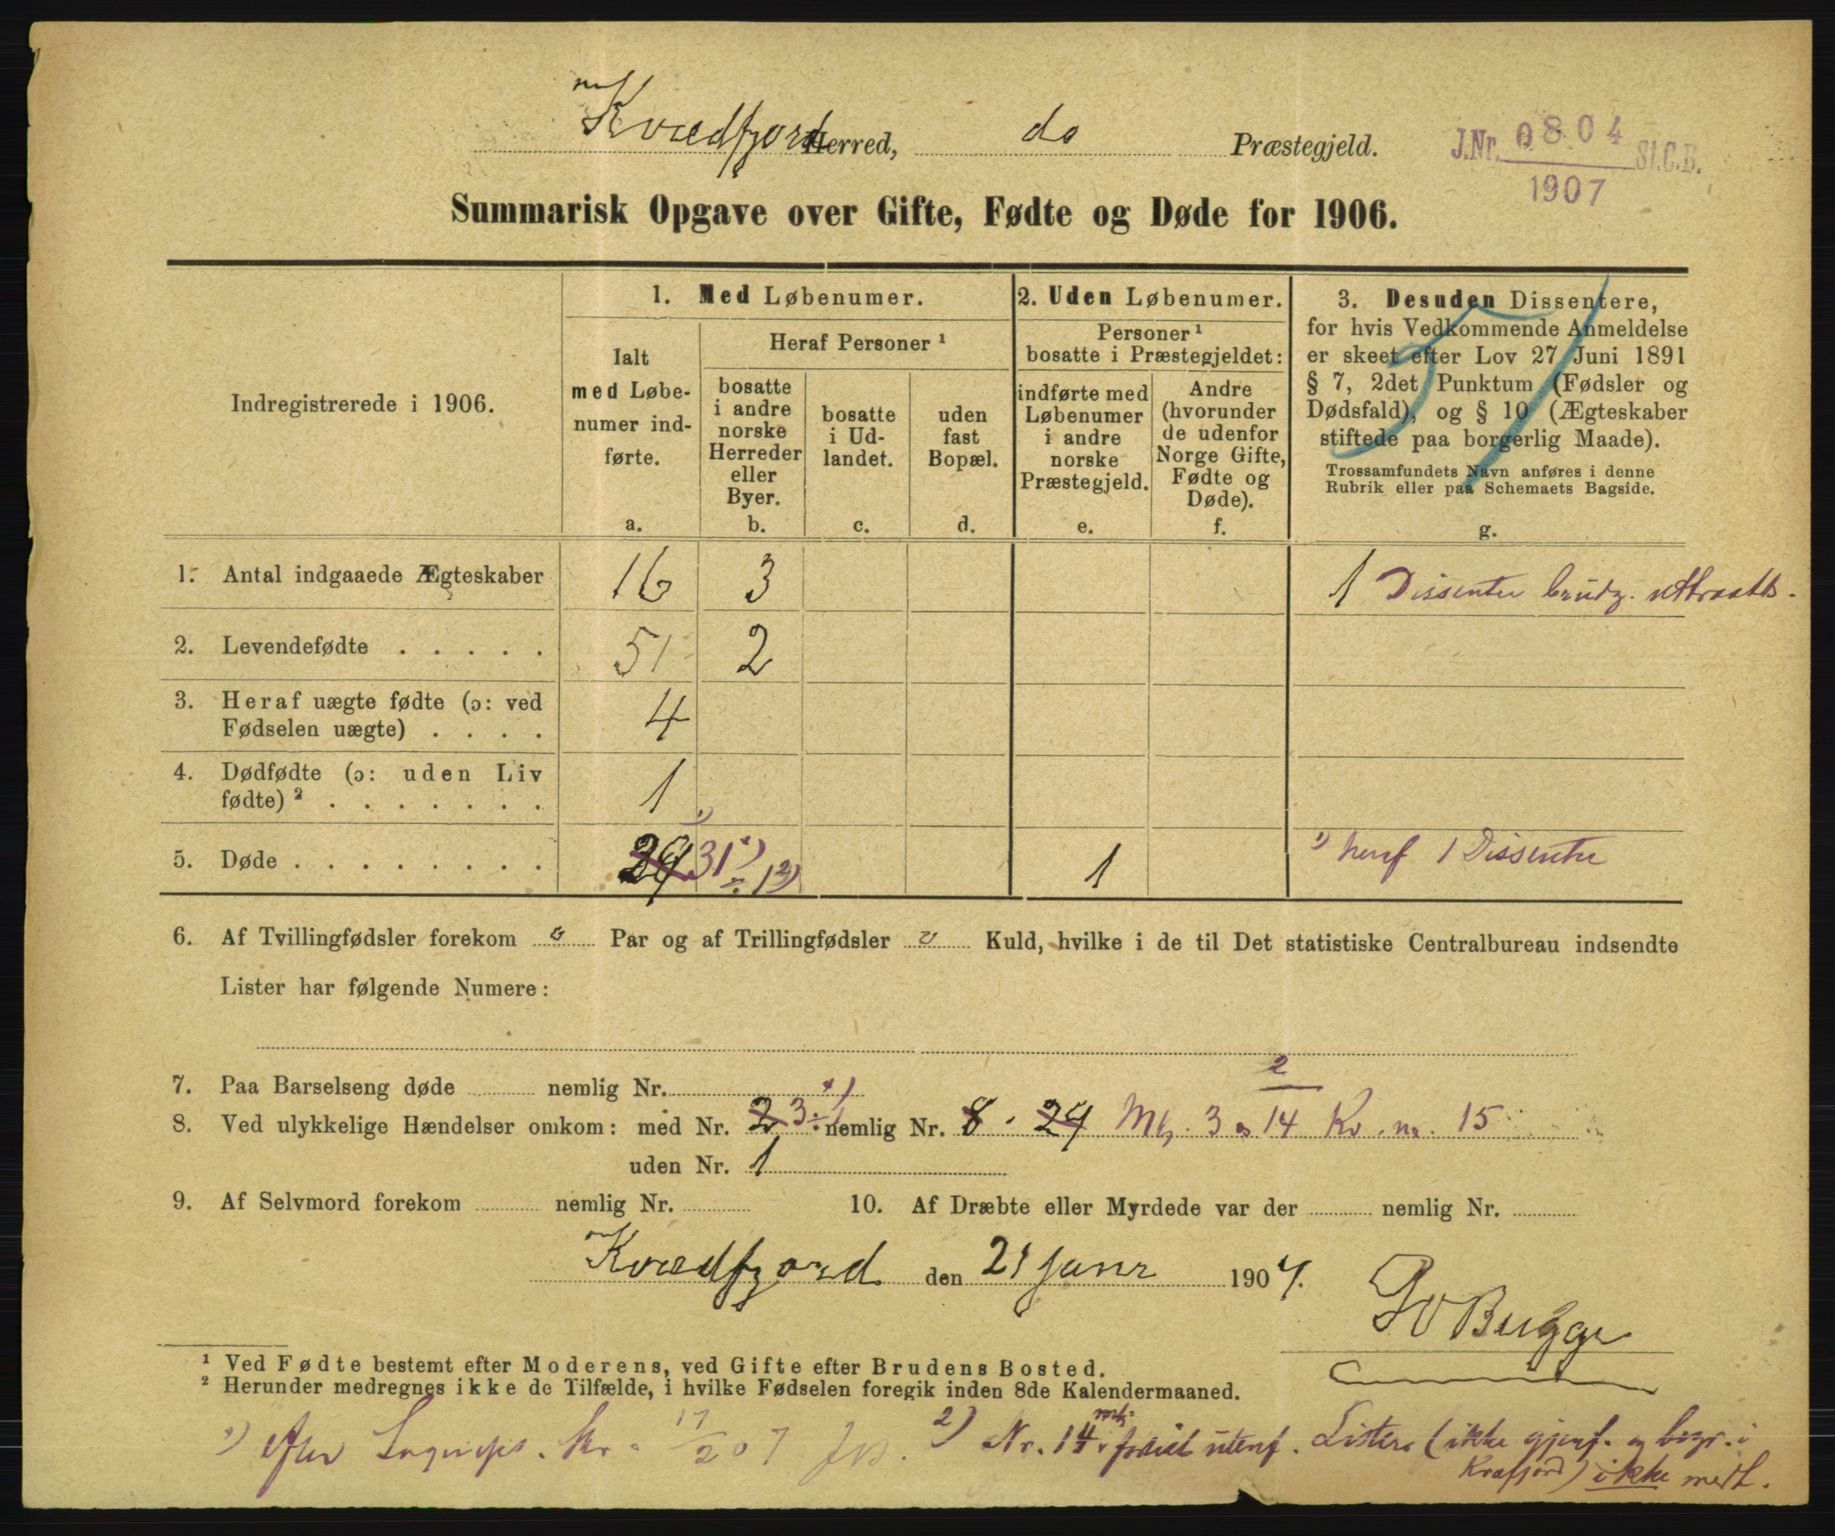 Kvædfjord Herred, do Præstegjeld.
J.Nr. 0804 St.C.B.
1907
Summarisk Opgave over Gifte, Fødte og Døde for 1906.
Indregistrerede i 1906.
1. Med Løbenumer.
Ialt
med Løbe-
numer ind-
førte.
a.
Heraf Personer ¹
bosatte
i andre
norske
Herreder
eller
Byer.
b.
bosatte
i Ud-
landet.
c.
uden
fast
Bopæl.
d.
2. Uden Løbenumer.
Personer ¹
bosatte i Præstegjeldet:
indførte med
Løbenumer
i andre
norske
Præstegjeld.
e.
Andre
(hvorunder
de udenfor
Norge Gifte,
Fødte og
Døde).
f.
3. Desuden Dissentere,
for hvis Vedkommende Anmeldelse
er skeet efter Lov 27 Juni 1891
§ 7, 2det Punktum (Fødsler og
Dødsfald), og § 10 (Ægteskaber
stiftede paa borgerlig Maade).
Trossamfundets Navn anføres i denne
Rubrik eller paa Schemaets Bagside.
g.
1. Antal indgaaede Ægteskaber 16 3 1 Dissenter brudg.
2. Levendefødte . . . . . 51 2
3. Heraf uægte fødte (ɔ: ved
Fødselen uægte) . . . . 4
4. Dødfødte (ɔ: uden Liv
fødte) ² . . . . . . . 1
5. Døde . . . . . . . . 29 31 ¹) ÷ 1 ²) 1 ¹) heraf 1 Dissenter
6. Af Tvillingfødsler forekom o Par og af Trillingfødsler o Kuld, hvilke i de til Det statistiske Centralbureau indsendte
Lister har følgende Numere:
7. Paa Barselseng døde nemlig Nr.
2
8. Ved ulykkelige Hændelser omkom: med Nr. 2 3 ÷ 1 nemlig Nr. 8 . 29 Mk. 3 o 14 Kv. nr. 15
uden Nr. 1
9. Af Selvmord forekom nemlig Nr. 10. Af Dræbte eller Myrdede var der nemlig Nr.
Kvædfjord den 21 Janr 1907.
Bugge
¹ Ved Fødte bestemt efter Moderens, ved Gifte efter Brudens Bosted.
² Herunder medregnes ikke de Tilfælde, i hvilke Fødselen foregik inden 8de Kalendermaaned.
¹) efter 17/2 07
²) Nr. 14 mk. Listen (ikke gjenf. og begr. i
Kvæfjord) ikke medt.